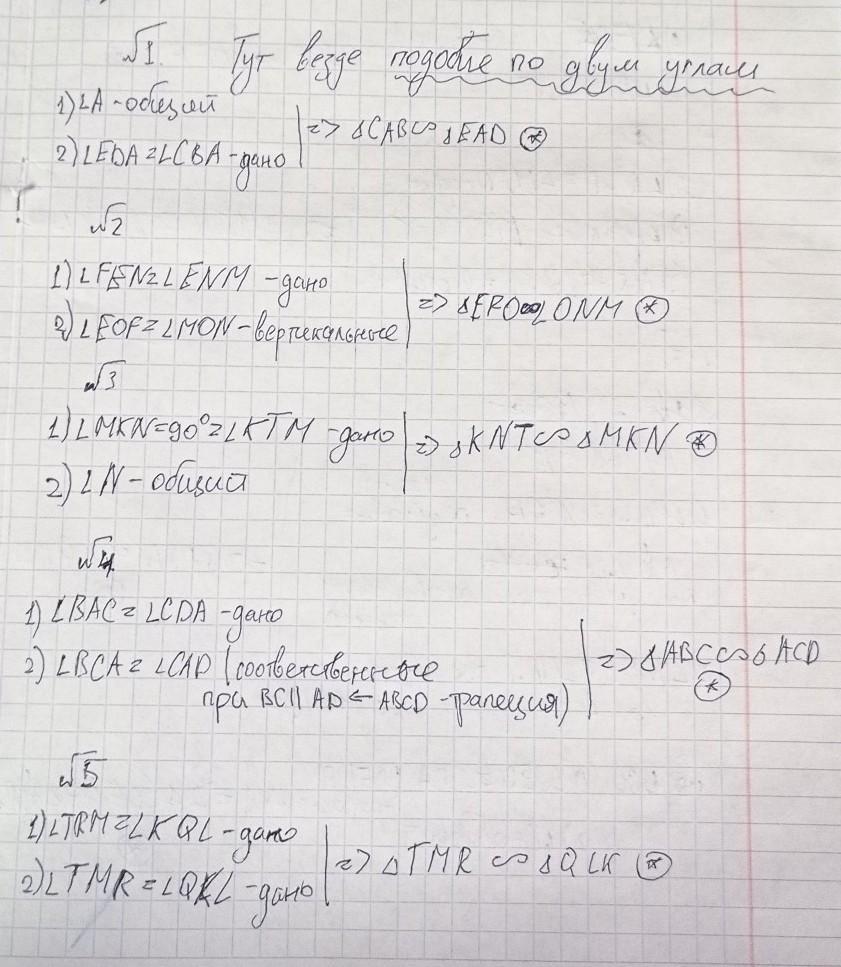 √1. Тут везде подобие по двум углам
1) ∠A - общий
2) ∠EDA = ∠CBA - дано
=> ΔCAB ∽ ΔEAD (*)
√2
1) ∠FEN = ∠ENM - дано
2) ∠EOF = ∠MON - вертикальные
=> ΔEFO ∽ ∠ONM (*)
√3
1) ∠MKN = 90° = ∠KTM - дано
2) ∠N - общий
=> ΔKNT ∽ ΔMKN (*)
√4.
1) ∠BAC = ∠CDA - дано
2) ∠BCA = ∠CAD (соответственные
при BC || AD ← ABCD - трапеция)
=> ΔABC ∽ ΔACD
(*)
√5
1) ∠TRM = ∠KQL - дано
2) ∠TMR = ∠QKL - дано
=> ΔTMR ∽ ΔQLK (*)